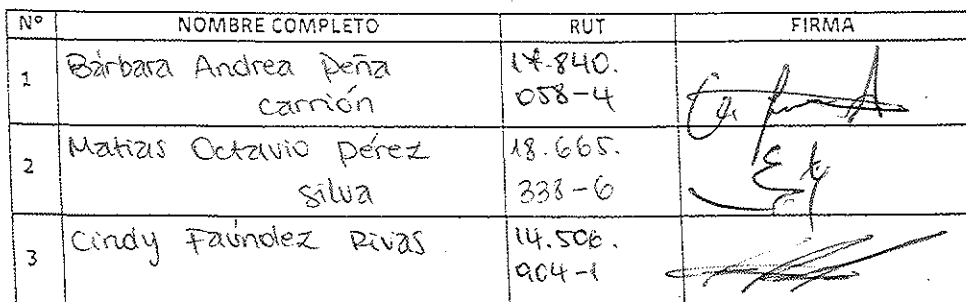 Nº NOMBRE COMPLETO RUT FIRMA
1 Bárbara Andrea Peña 17.840.
carrión 058-4
2 Matias Octavio Pérez 18.665.
silva 338-6
3 Cindy Faúndez Rivas 14.506.
904-1